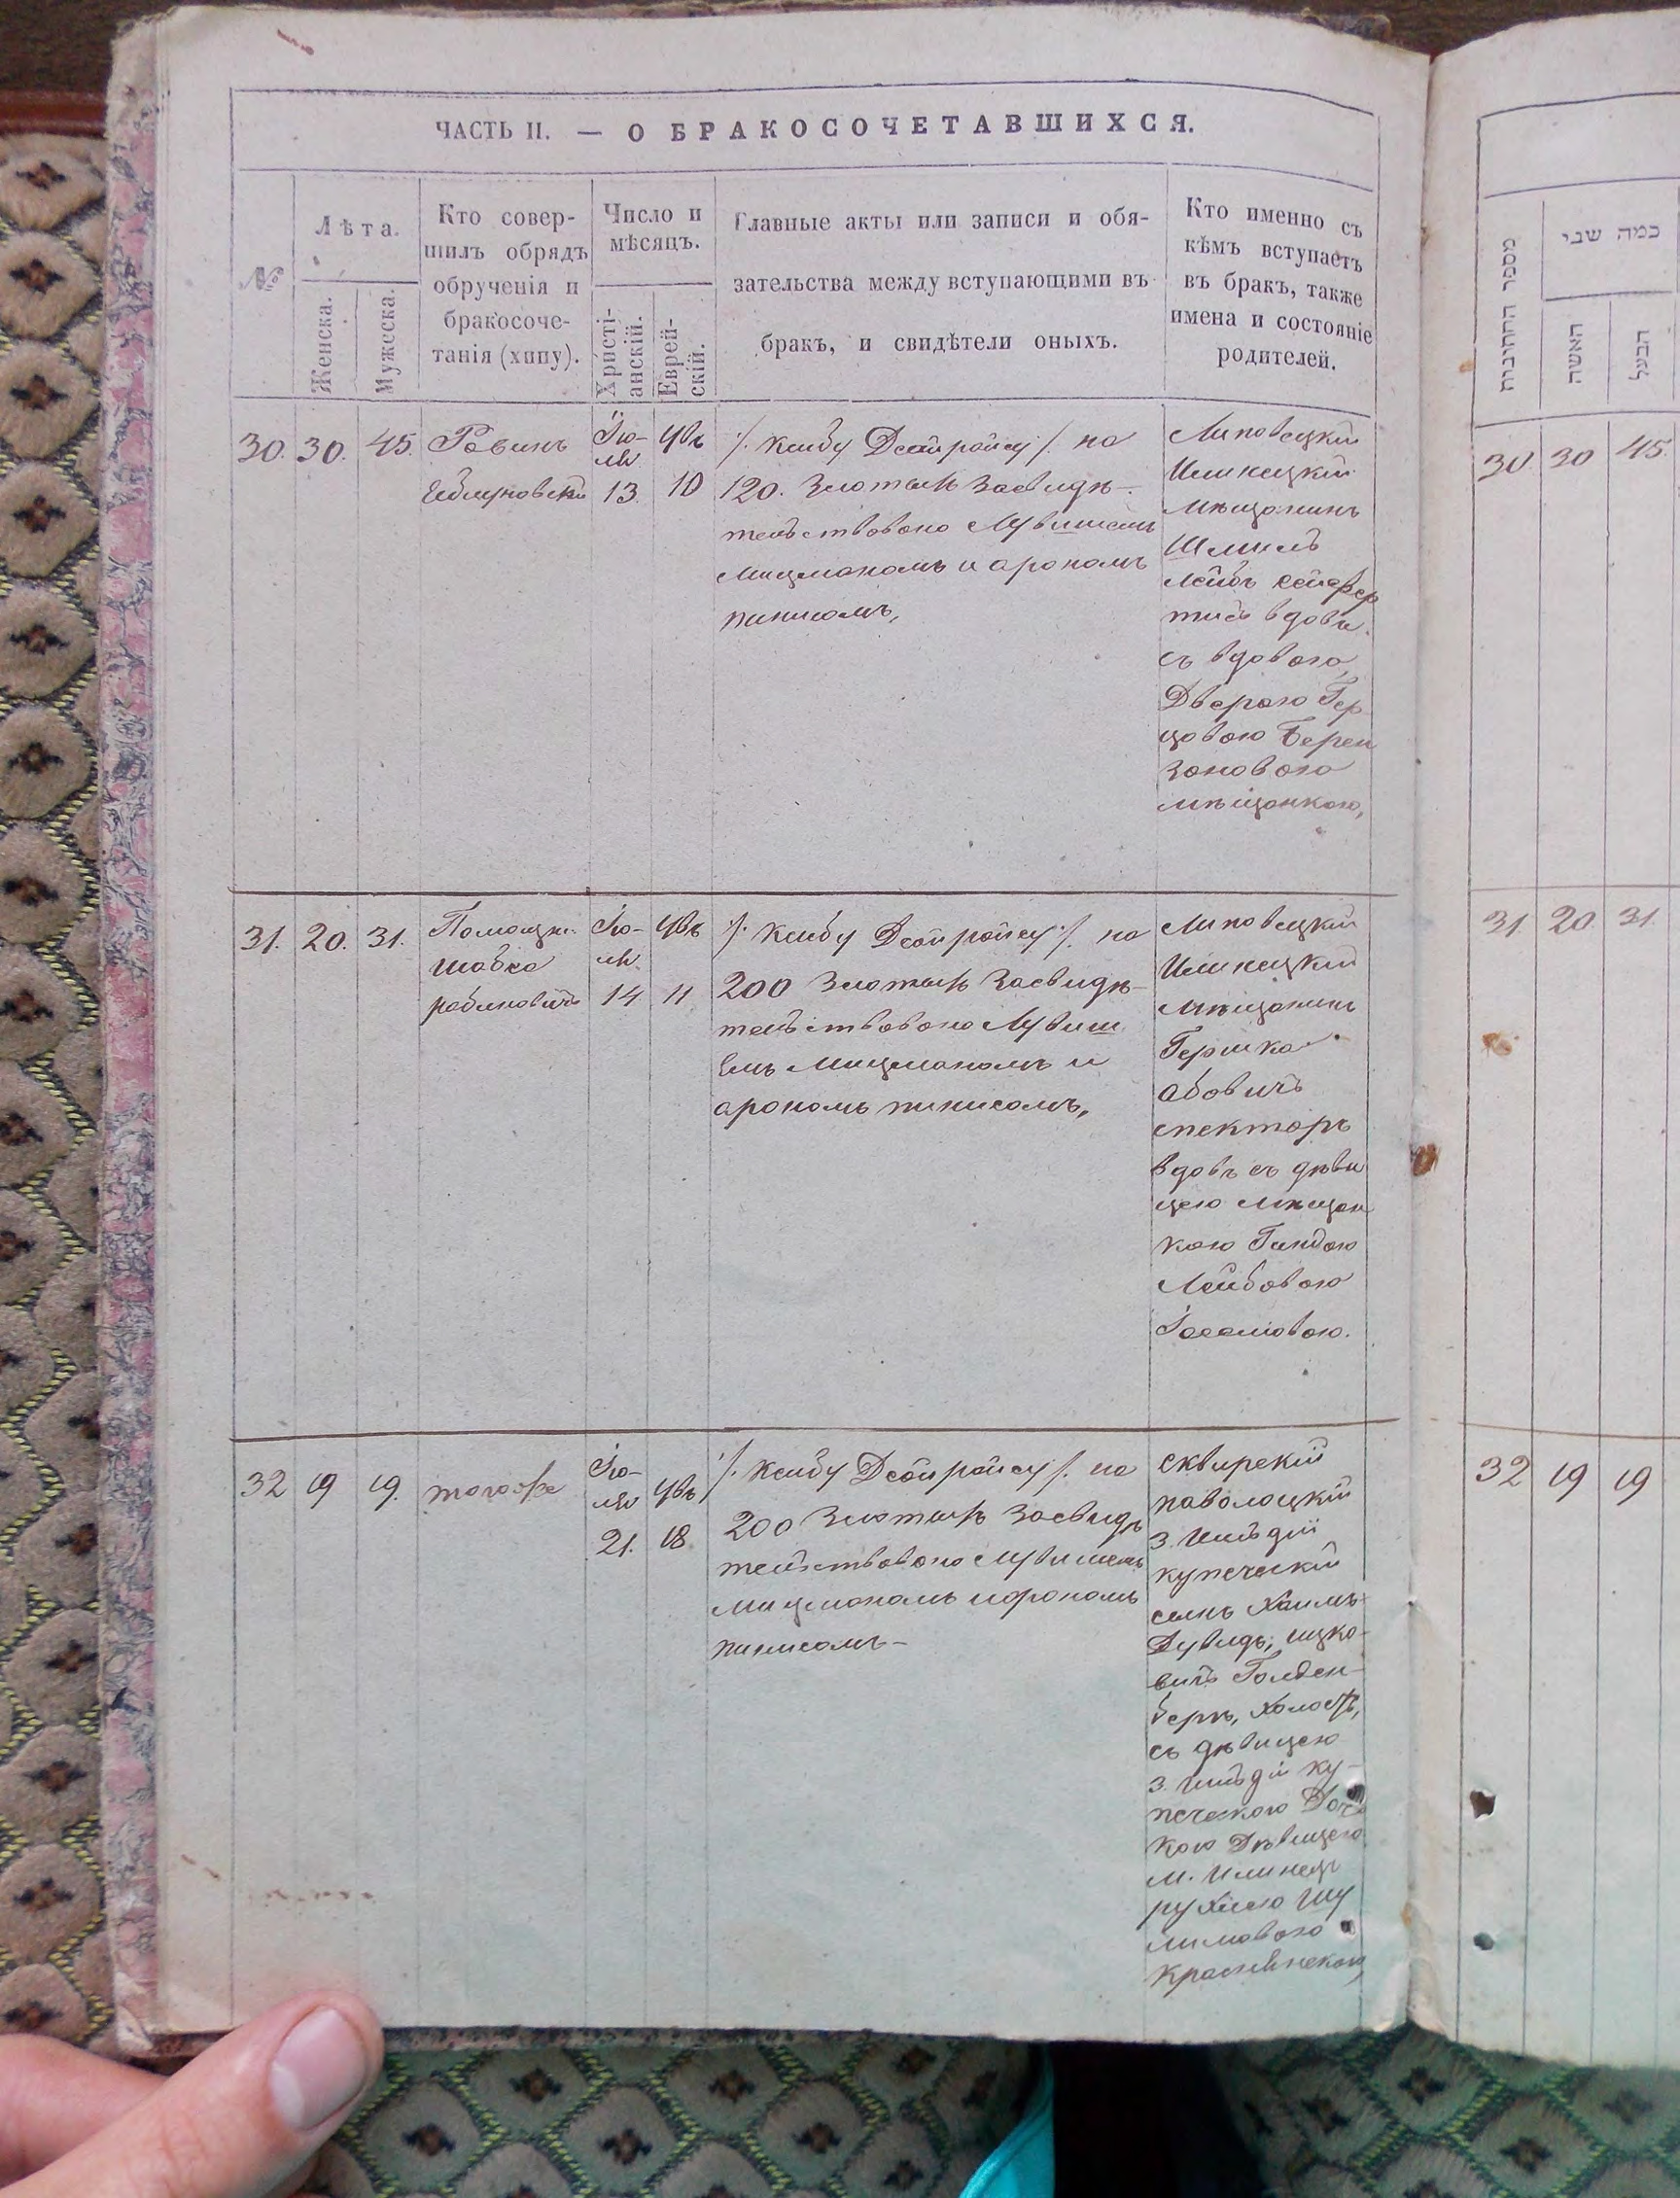 ЧАСТЬ II. — О БРАКОСОЧЕТАВШИХСЯ.
№
Лѣта.
Женска.
Мужеска.
Кто совер-
шилъ обрядъ
обрученія и
бракосоче-
танія (хипу).
Число и
мѣсяцъ.
Христі-
анскій.
Еврей-
скій.
Главные акты или записи и обя-
зательства между вступающими въ
бракъ, и свидѣтели оныхъ.
Кто именно съ
кѣмъ вступаетъ
въ бракъ, также
имена и состояніе
родителей.
30. 30. 45.
Равинъ
Ію-
ля
13
10
на
120. Злотыхъ Засвидѣ-
тельствовано
Мицмономъ и арономъ
пинисомъ,
Липовецкій
Илинецкій
мѣщанинъ
Шмиль
Лейбъ
вдовъ
съ вдовою
Дверою Гер
цовою Берен
зоновою
мѣщанкою,
31. 20. 31.
Помощн.
шабса
рабиновичъ
Ію-
ля
14
11
на
200 Злотыхъ Засвидѣ-
тельствовано
Мицмономъ и
арономъ пинисомъ,
Липовецкій
Илинецкій
мѣщанинъ
Гершко
абовичъ
спекторъ
вдовъ съ дѣви
цею мѣщан
кою Гиндою
Лейбовою
32 19 19.
тогоже
Ію-
ля
21.
18
на
200 Злотыхъ Засвидѣ
тельствовано
Мицмономъ и арономъ
пинисомъ-
сквирскій
паволоцкій
3. гильдіи
купеческій
сынъ Хаимъ
Дувидъ, ицко-
вичъ Голден-
берг, Холостъ,
съ дѣвицею
3. гильдіи ку-
печескою Доч
кою Дѣвицею
м. Илинецъ
рухлею Шу
лимовою
מספר החתונות
כמה שני
האשה
הבעל
30 30 45
31. 20 31.
32 19 19